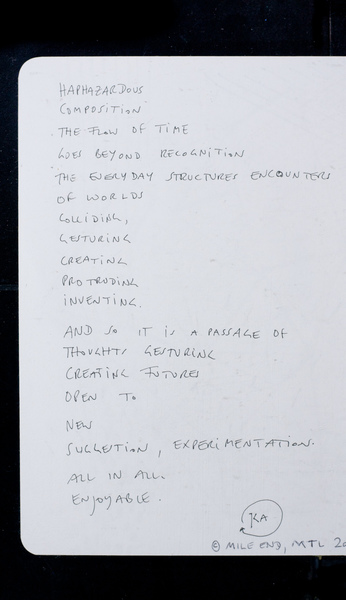 HAPHAZARDOUS
COMPOSITION
THE FLOW OF TIME
GOES BEYOND RECOGNITION
THE EVERYDAY STRUCTURES ENCOUNTERS
OF WORLDS
COLLIDING,
GESTURING
CREATING
PROTRUDING
INVENTING.
AND SO IT IS A PASSAGE OF
THOUGHTS GESTURING
CREATING FUTURES
OPEN TO
NEW
SUGGESTION, EXPERIMENTATION.
ALL IN ALL.
ENJOYABLE.
KA
© MILE END, MTL 20